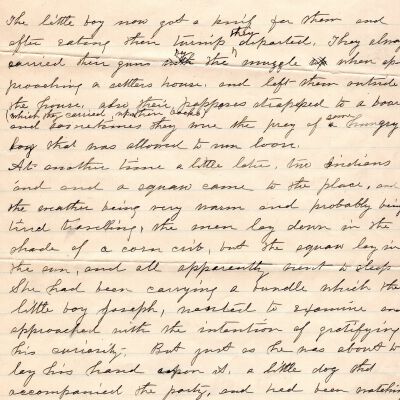 The little boy now got a knif for them and
after eating their turnip they departed. They alway
carried their guns by the muzzle when ap
proaching a settlers house. and left them outside
the house, also their papooses strapped to a boar
which they carried on their backs
and sometimes they were the prey of some hungry
hog that was allowed to run loose.
At another time a little later, two indians
and and a squaw came to the place, and
the weather being very warm and probably being
tired travelling, the men lay down in the
shade of a corn crib, but the squaw lay in
the sun, and all apparently went to sleep
She had been carrying a bundle which the
little boy Joseph, wanted to examine an
approached with the intention of gratifying
his curiosity. But just as he was about to
lay his hand upon it, a little dog that
accompanied the party, and had been watchin